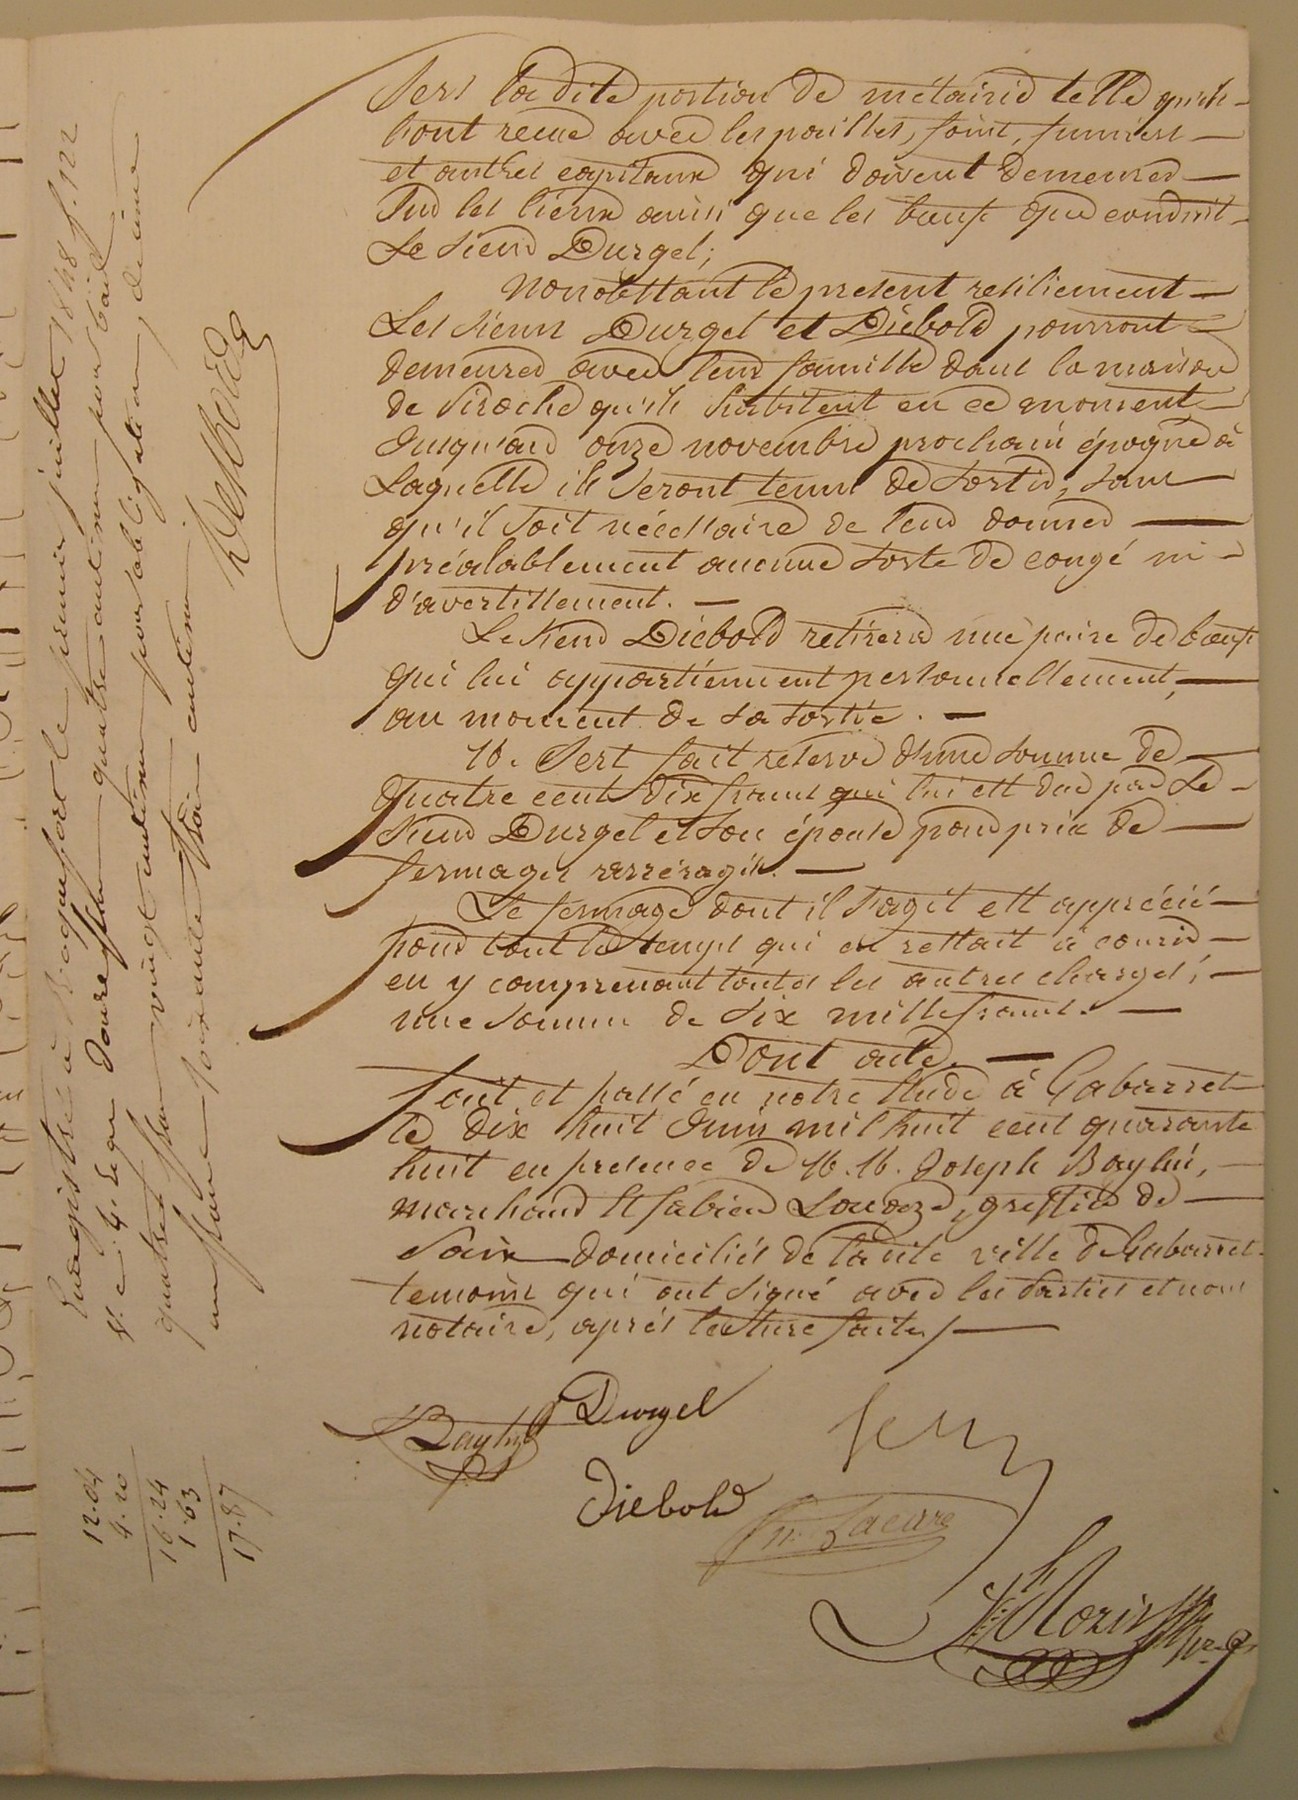 Sers la dite portion de métairie telle qu'ils
l'ont recue avec les pailles, foins, fumiers
et autres capitaux qui doivent demeurer
sur les lieux ainsi que les bœufs que conduit
le sieur Durgel;
Nonobstant le présent résiliement
Les sieurs Durgel et Diébold pourront
demeurer avec leur famille dans la maison
de qu'ils habitent en ce moment
jusqu'au onze novembre prochain époque à
Laquelle ils seront tenus de sortir, sans
qu'il soit nécessaire de leur donner
préalablement aucune sorte de congé ni
d'avertissement.
Le sieur Diébold retirera une paire de bœufs
qui lui appartiennent personnellement,
au moment de sa sortie.
M. Sers fait réserve d'une somme de
quatre cent dix francs qui lui est due par le
sieur Durgel et son épouse pour prix de
fermages arréragés.
Le fermage dont il s'agit est apprécié
pour tout le temps qui en restait à courir
en y comprenant toutes les autres charges,
une somme de six mille francs.
Dont acte.
Fait et passé en notre étude à Gabarret
le dix huit Juin mil huit cent quarante
huit en présence de M.M. Joseph Baylin,
marchand et Fabien greffier de
paix domiciliés de la dite ville de Gabarret
temoins qui ont signé avec les parties et nous
notaire, après lecture faite/
Baylin Durgel Sers
Diebold
Enregistré à Roquefort le premier juillet 1848 f. 122
v. c. 4. Reçu douze francs quatre centimes pour bail
quatre francs vingt centimes pour obligation, décime
un franc soixante trois centimes
12.04
4.20
16.24
1.63
17.87